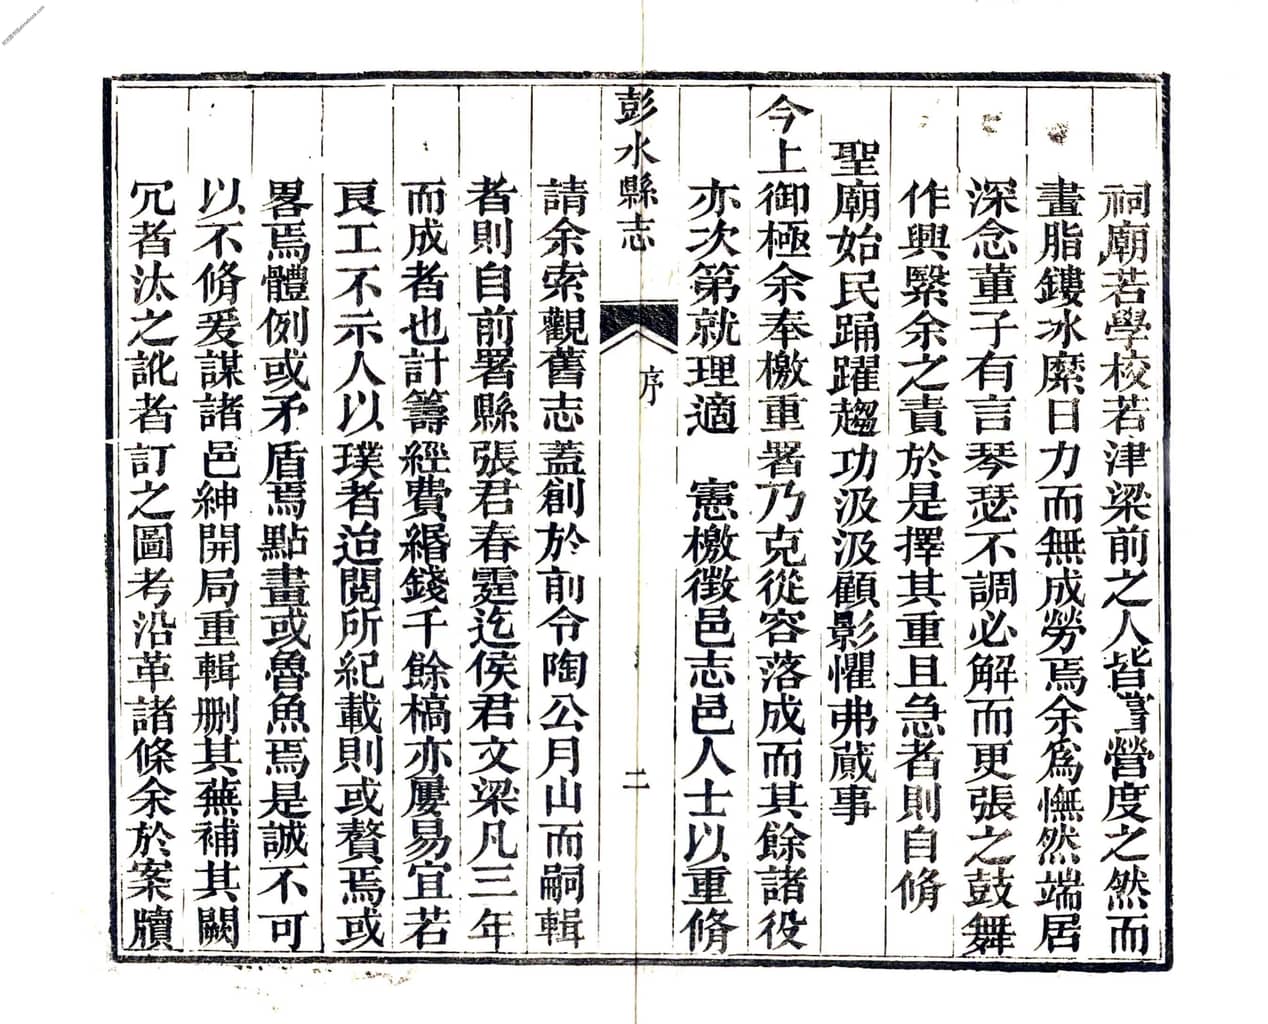 祠廟若學校若津梁前之人皆嘗營度之然而
畫脂鏤冰縻日力而無成勞焉余爲憮然端居
深念董子有言琴瑟不調必解而更張之鼓舞
作興繄余之責於是擇其重且急者則自脩
聖廟始民踊躍趨功汲汲顧影懼弗蕆事
今上御極余奉檄重署乃克從容落成而其餘諸役
亦次第就理適 憲檄徵邑志邑人士以重脩
彭水縣志 序 二
請余索觀舊志蓋創於前令陶公月山而嗣輯
者則自前署縣張君春霆迄侯君文梁凡三年
而成者也計籌經費緡錢千餘槁亦屢易宜若
良工不示人以璞者迨閱所紀載則或贅焉或
畧焉體例或矛盾焉點畫或魯魚焉是誠不可
以不脩爰謀諸邑紳開局重輯刪其蕪補其闕
冗者汰之訛者訂之圖考沿革諸條余於案牘